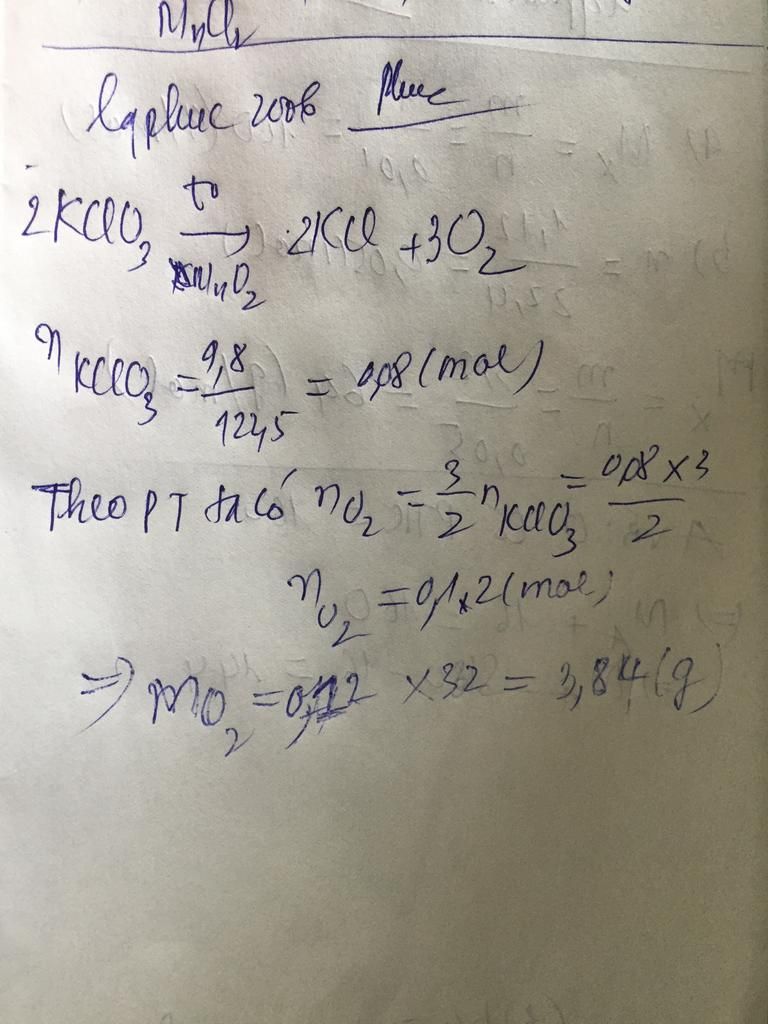 MnO2
2KClO3 →(t0, MnO2) 2KCl + 3O2
nKClO3 = 9,8/122,5 = 0,08 (mol)
Theo PT ta có nO2 = 3/2 nKClO3 = 0,08 × 3/2
nO2 = 0,12 (mol)
=> mO2 = 0,12 × 32 = 3,84 (g)